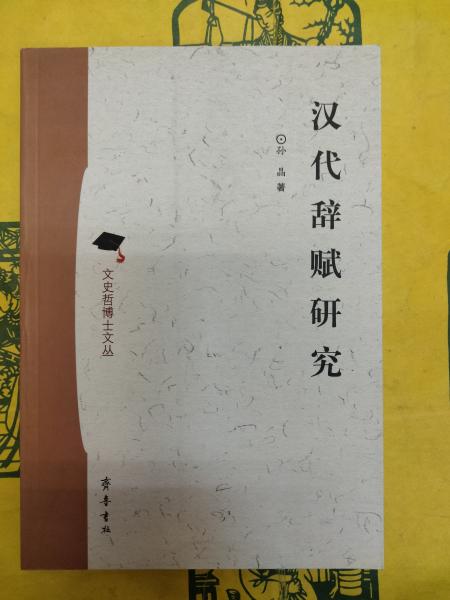 汉代辞赋研究
⊙孙 晶 著
文史哲博士文丛
齐鲁书社